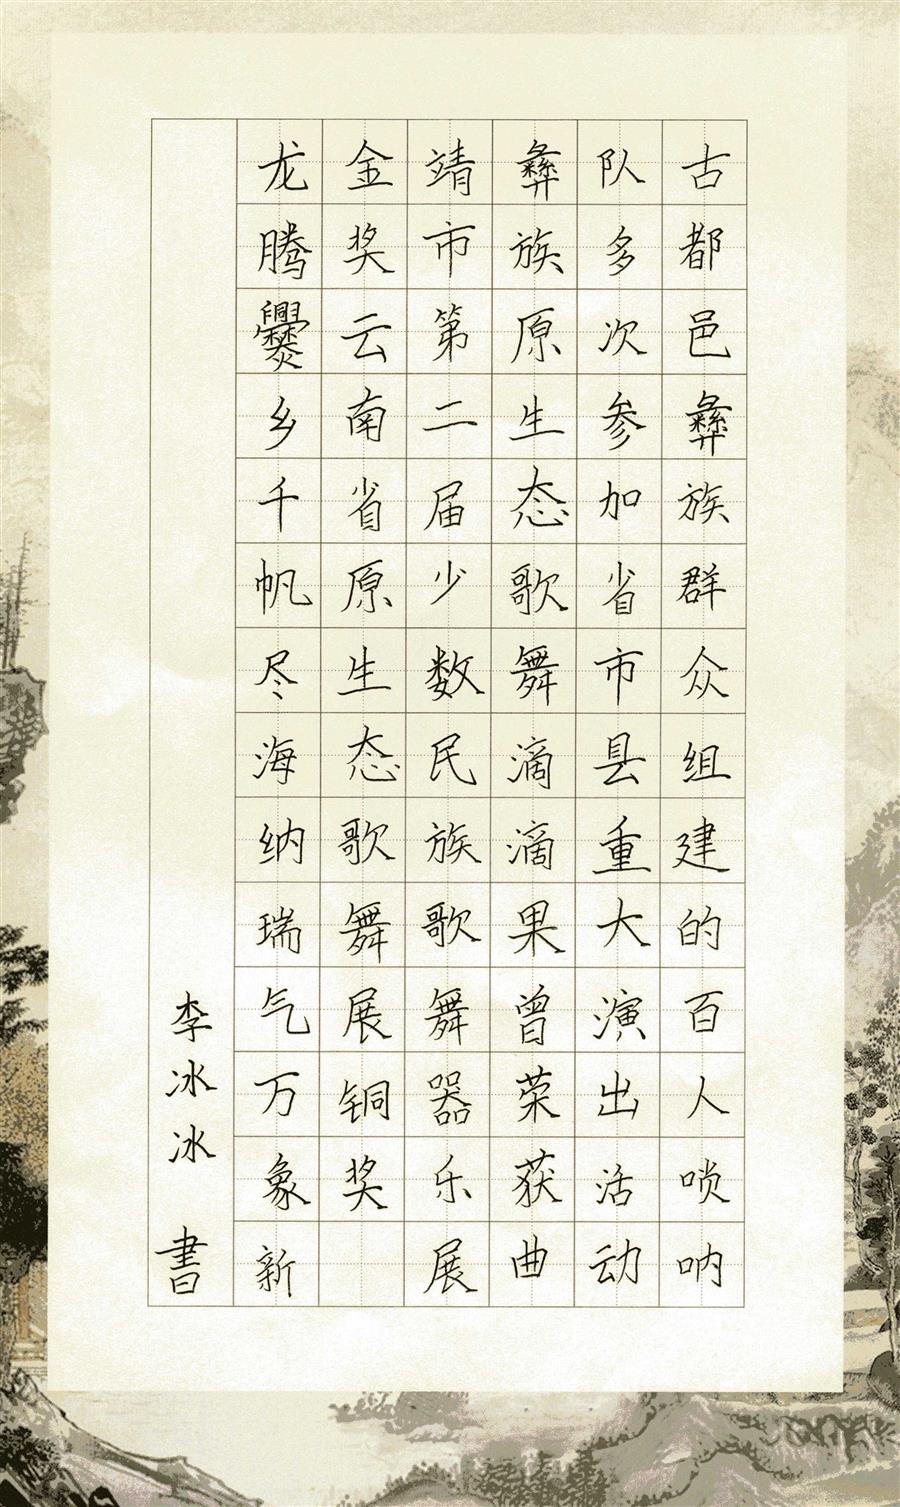 古都邑彝族群众组建的百人唢呐
队多次参加省市县重大演出活动
彝族原生态歌舞滴滴果曾荣获曲
靖市第二届少数民族歌舞器乐展
金奖云南省原生态歌舞展铜奖
龙腾爨乡千帆尽海纳瑞气万象新
李冰冰 書